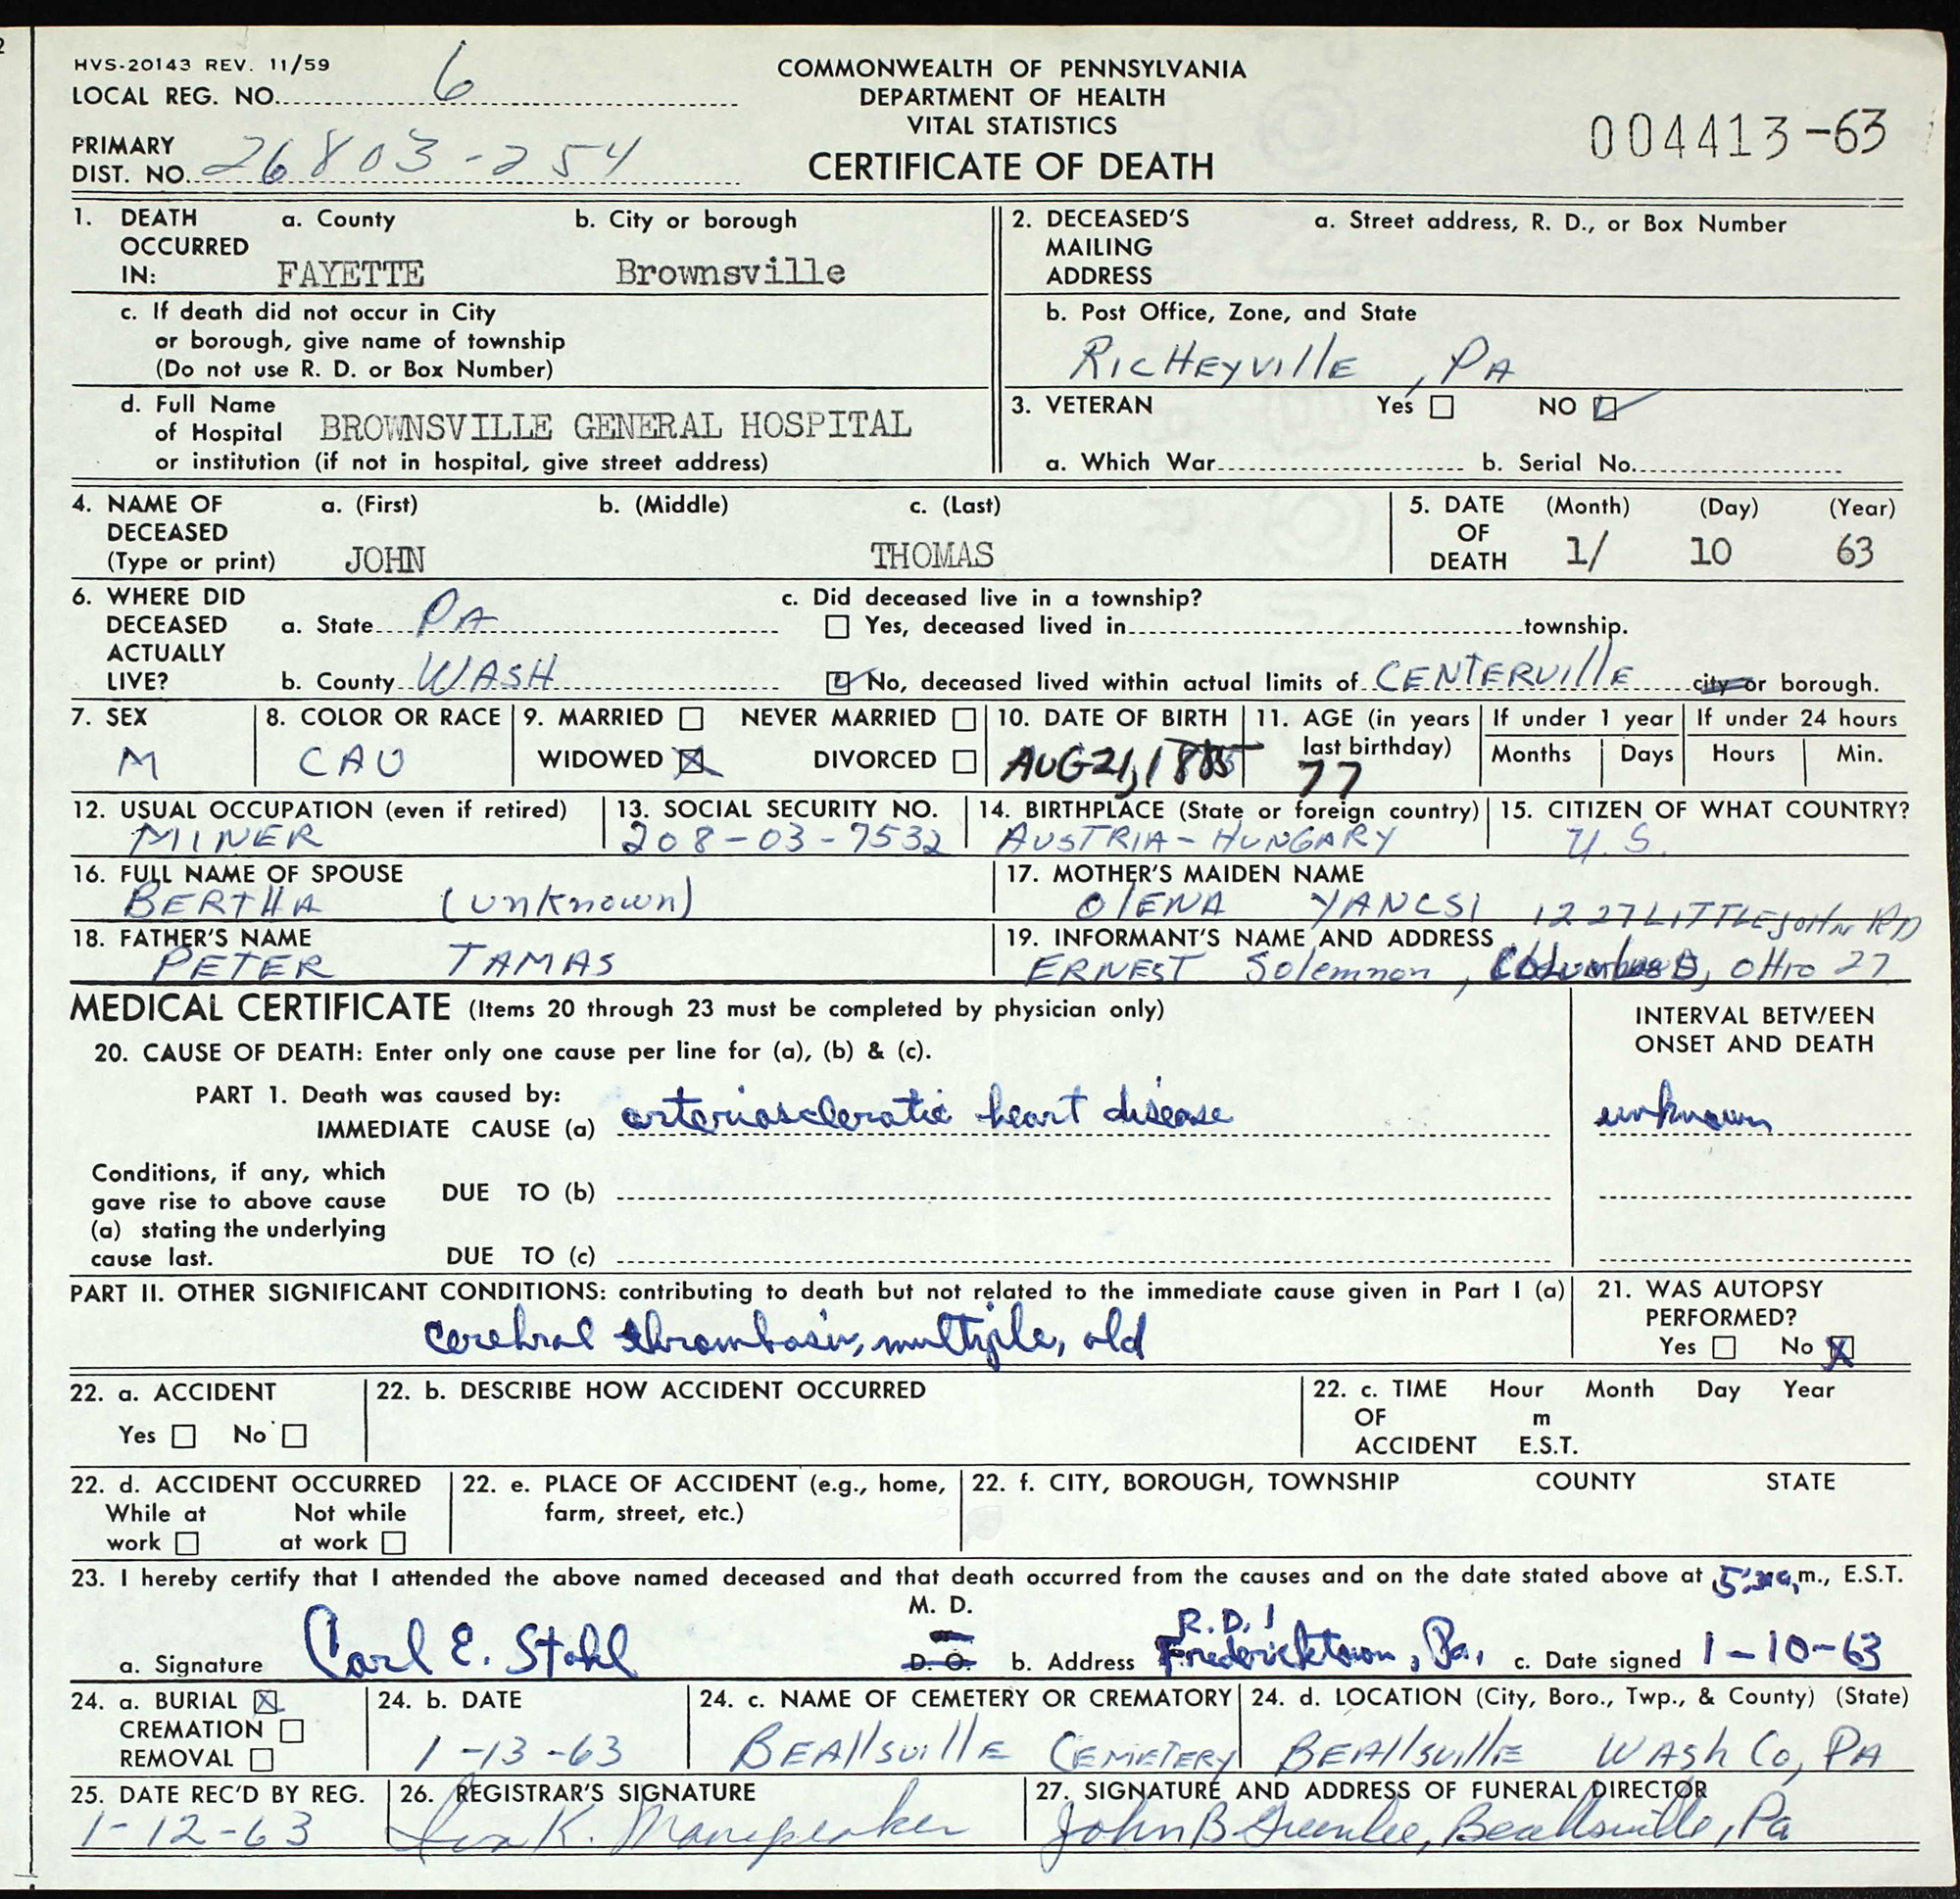 HVS-20143 REV. 11/59
LOCAL REG. NO. 6
PRIMARY
DIST. NO. 26803-254
COMMONWEALTH OF PENNSYLVANIA
DEPARTMENT OF HEALTH
VITAL STATISTICS
CERTIFICATE OF DEATH
004413-63
1. DEATH OCCURRED IN: a. County b. City or borough
FAYETTE Brownsville
c. If death did not occur in City
or borough, give name of township
(Do not use R. D. or Box Number)
d. Full Name
of Hospital BROWNSVILLE GENERAL HOSPITAL
or institution (if not in hospital, give street address)
2. DECEASED'S MAILING ADDRESS a. Street address, R. D., or Box Number
b. Post Office, Zone, and State
RICHEYVILLE, PA
3. VETERAN Yes NO
a. Which War b. Serial No.
4. NAME OF DECEASED (Type or print) a. (First) b. (Middle) c. (Last)
JOHN THOMAS
5. DATE OF DEATH (Month) (Day) (Year)
1/ 10 63
6. WHERE DID DECEASED ACTUALLY LIVE?
a. State PA
b. County WASH
c. Did deceased live in a township?
Yes, deceased lived in township.
No, deceased lived within actual limits of CENTERVILLE city or borough.
7. SEX
M
8. COLOR OR RACE
CAU
9. MARRIED NEVER MARRIED
WIDOWED X DIVORCED
10. DATE OF BIRTH
AUG 21, 1885
11. AGE (in years last birthday)
77
If under 1 year
Months Days
If under 24 hours
Hours Min.
12. USUAL OCCUPATION (even if retired)
MINER
13. SOCIAL SECURITY NO.
208-03-7532
14. BIRTHPLACE (State or foreign country)
AUSTRIA-HUNGARY
15. CITIZEN OF WHAT COUNTRY?
U.S.
16. FULL NAME OF SPOUSE
BERTHA (unknown)
17. MOTHER'S MAIDEN NAME
OlENA YANCSI
18. FATHER'S NAME
PETER TAMAS
19. INFORMANT'S NAME AND ADDRESS
1227 LITTLEJOHN RD
ERNEST Solemnon, Columbus, OHIO 27
MEDICAL CERTIFICATE (Items 20 through 23 must be completed by physician only)
20. CAUSE OF DEATH: Enter only one cause per line for (a), (b) & (c).
INTERVAL BETWEEN
ONSET AND DEATH
PART 1. Death was caused by:
IMMEDIATE CAUSE (a) arteriosclerotic heart disease unknown
Conditions, if any, which
gave rise to above cause
(a) stating the underlying
cause last.
DUE TO (b)
DUE TO (c)
PART II. OTHER SIGNIFICANT CONDITIONS: contributing to death but not related to the immediate cause given in Part I (a)
cerebral thrombosis, multiple, old
21. WAS AUTOPSY PERFORMED?
Yes No X
22. a. ACCIDENT
Yes No
22. b. DESCRIBE HOW ACCIDENT OCCURRED
22. c. TIME OF ACCIDENT Hour Month Day Year
m
E.S.T.
22. d. ACCIDENT OCCURRED
While at work Not while at work
22. e. PLACE OF ACCIDENT (e.g., home, farm, street, etc.)
22. f. CITY, BOROUGH, TOWNSHIP COUNTY STATE
23. I hereby certify that I attended the above named deceased and that death occurred from the causes and on the date stated above at m., E.S.T.
a. Signature Carl E. Stahl M. D. D. O.
b. Address R.D. 1 Fredericktown, Pa.
c. Date signed 1-10-63
24. a. BURIAL X
CREMATION
REMOVAL
24. b. DATE
1-13-63
24. c. NAME OF CEMETERY OR CREMATORY
BEAllsvillE CEMETERY
24. d. LOCATION (City, Boro., Twp., & County) (State)
BEAllsvillE WASh Co, PA
25. DATE REC'D BY REG.
1-12-63
26. REGISTRAR'S SIGNATURE
K.
27. SIGNATURE AND ADDRESS OF FUNERAL DIRECTOR
John B Greenlee, Beallsville, Pa